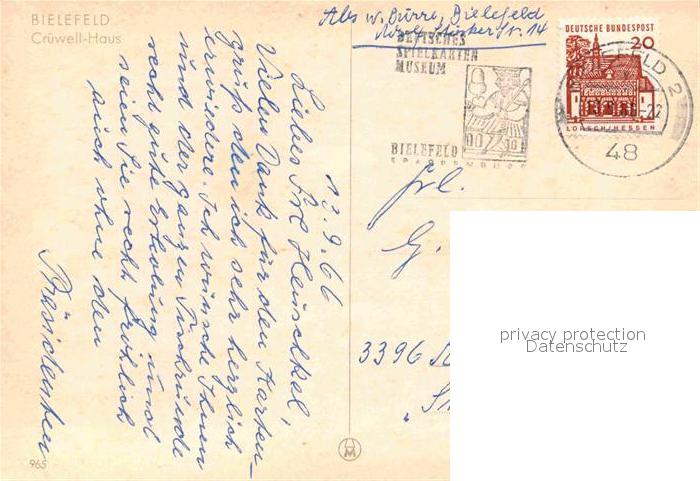 BIELEFELD
Crüwell-Haus
Abs. W. Bürre, Bielefeld
Str. 14
DEUTSCHES
SPIELKARTEN
MUSEUM
BIELEFELD
SPARRENBURG
DEUTSCHE BUNDESPOST
20
LORSCH/HESSEN
BIELEFELD 2
-22
48
12.9.66
Liebes Frl. Heuschkel,
Vielen Dank für den Karten-
gruß den ich sehr herzlich
erwidere. Ich wünsche Ihnen
und der ganzen Tischrunde
recht gute Erholung und
seien Sie recht fröhlich
auch ohne den
Präsidenten
Frl.
G.
3396
privacy protection
Datenschutz
965